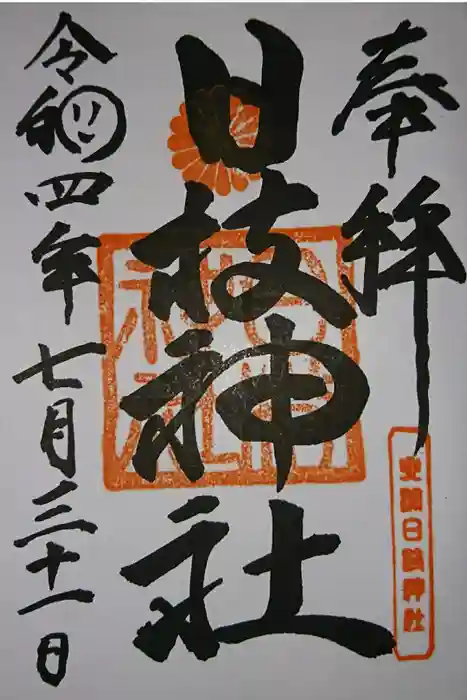 奉拝
日枝神社
令和四年七月三十一日